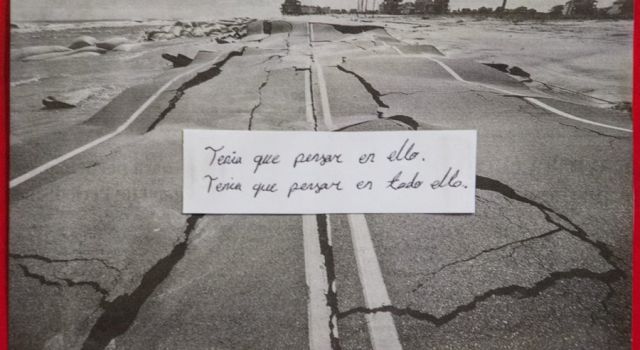 Tenia que pensar en ello.
Tenia que pensar en todo ello.